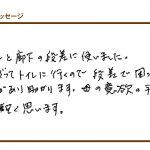 ッセージ
と廊下の段差に使いました。
ってトイレに行くので段差で困っ
があり助かります。母の意欲の手
軽く思います。